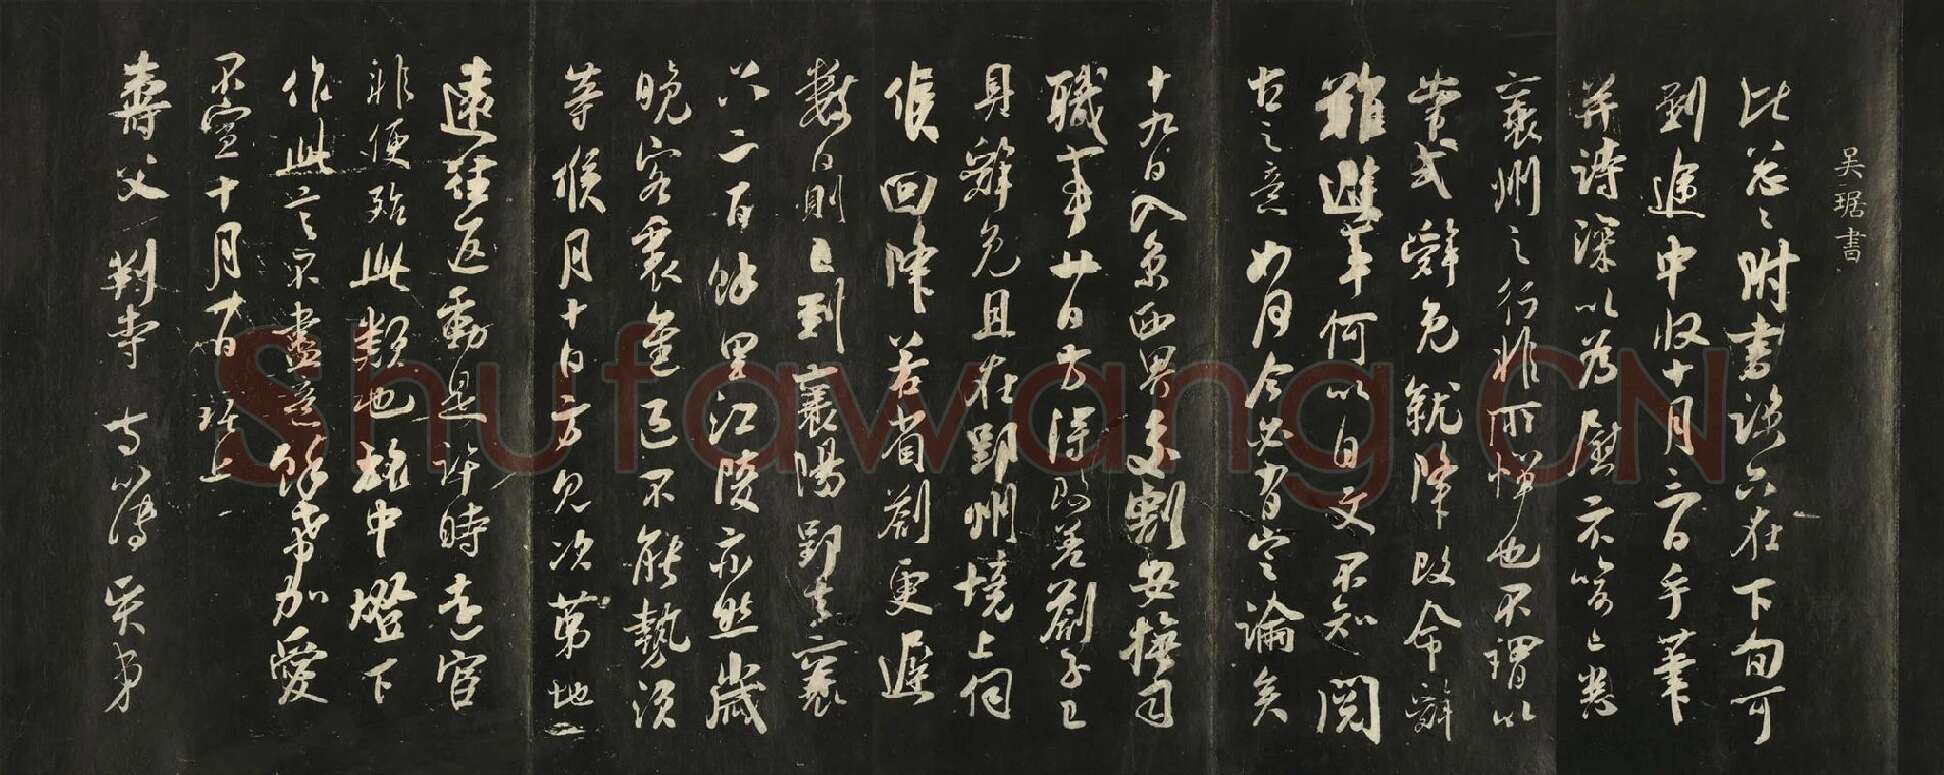 吴琚書
比忽之附書後六在下旬可
到遞中收十月六日手筆
并詩深以為慰示喻已悉
襄州之行非所憚也不謂以
嘗式辭免就降改命辭
難避事何以自文不知閱
古之意如何今必有定論矣
十九日入京西界交割安撫司
職事廿一日方得改差劄子已
具辭免且在郢州境上伺
候回降若省劄更遲
數日則已到襄陽郢去襄
只二百餘里江陵亦然歲
晚客裏重遷不能勢須
等候月十日方見次第地
遠往返動是許時遠官
非便殆此類也舟中燈下
作此言不盡意餘希加愛
不宣十月廿八日琚上
壽父判寺 寺簿賢弟
Shufawang.CN